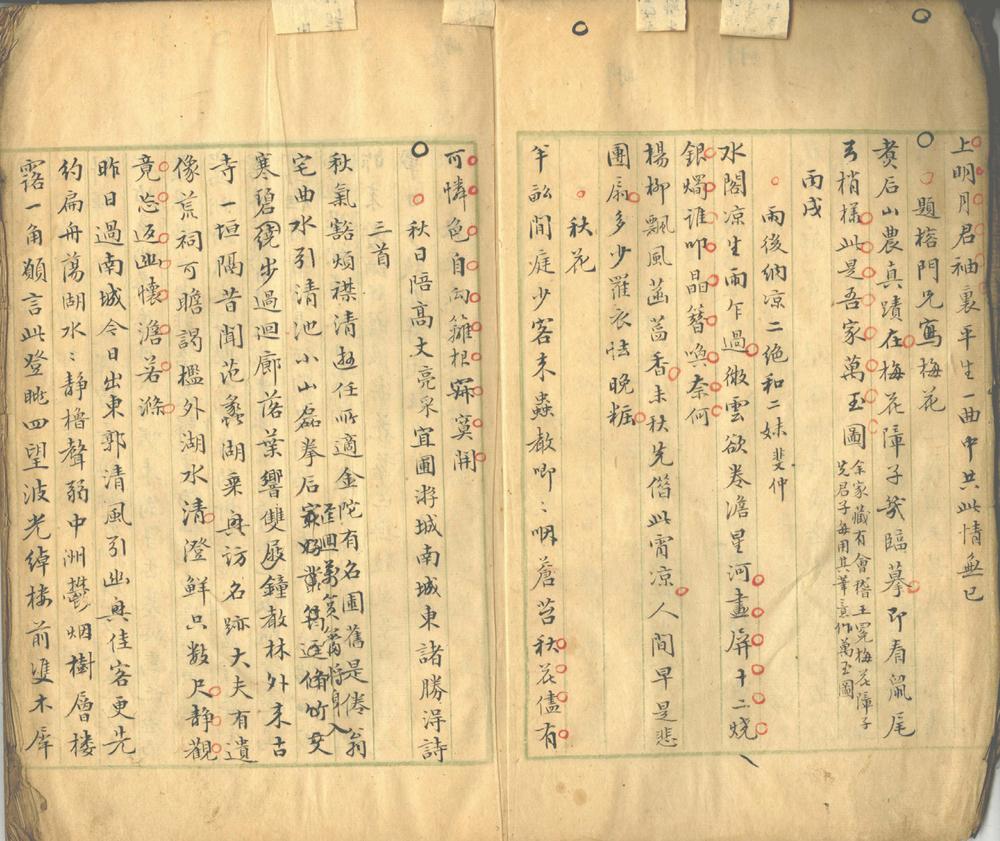 上明月君袖裏平生一曲中共此情無已
題榕門兄寫梅花
煑石山農真蹟在梅花障子幾臨摹即看鼠尾
梢樣此是吾家萬玉圖
余家藏有會稽王冕梅花障子
先君子每用其筆意作萬玉圖
丙戌
雨後納凉二絶和二妹斐仲
水閣凉生雨乍過微雲欲卷澹星河畫屏十二燒
銀燭誰叩晶簪喚奈何
楊柳飄風菡萏香未秋先偕此宵凉人間早是悲
團扇多少羅衣怯晚粧
秋花
訟閒庭少客来蟲聲唧〻咽蒼苔秋花儘有
可憐色自向籬根寂寞開
秋日陪高丈亮采宜圃游城南城東諸勝得詩
三首
秋氣豁煩襟清遊任所適金陀有名圃舊是倦翁
宅曲水引清池小山磊拳石
寒碧繞步過迴廊落葉響雙屐鐘聲林外来古
寺一垣隔昔聞范蠡湖乘興訪名跡大夫有遺
像荒祠可瞻謁檻外湖水清澄鮮只數尺静觀
竟忘返幽懷澹若滌
昨日過南城今日出東郭清風引幽興佳客更先
約扁舟蕩湖水〻静櫓聲弱中洲鬱烟樹層楼
露一角願言此登眺四望波光綽楼前雙木犀